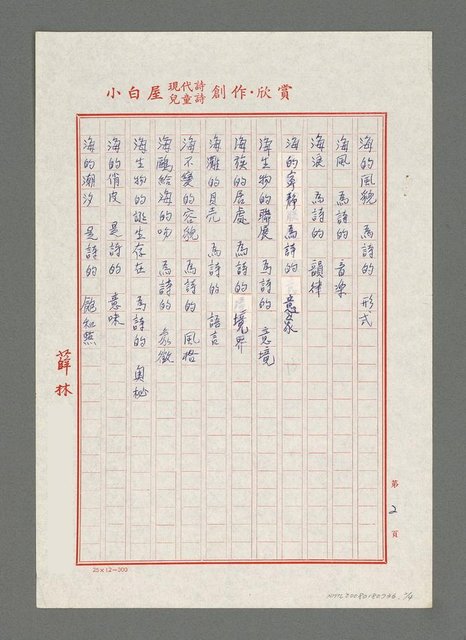 小白屋 現代詩 兒童詩 創作·欣賞
海的風貌 為詩的 形式
海風 為詩的 音樂
海浪 為詩的 韻律
海的寧靜 為詩的 意象
海生物的聯展 為詩的 意境
海族的居處 為詩的 境界
海灘的貝壳 為詩的 語言
海不變的容貌 為詩的 風格
海鷗給海的吻 為詩的 象徵
海生物的誕生存在 為詩的 奧祕
海的俏皮 是詩的 意味
海的潮汐 是詩的
薛林
第2頁
25×12=300